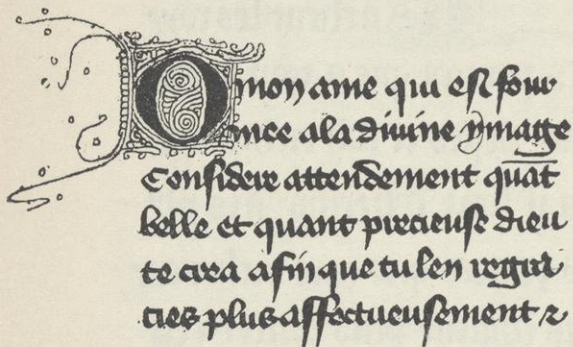 O mon ame qui es four
mee a la divine ymage
Considere attendement quāt
belle et quant precieuse dieu
te crea afin que tu len regra
cies plus affectueusement &